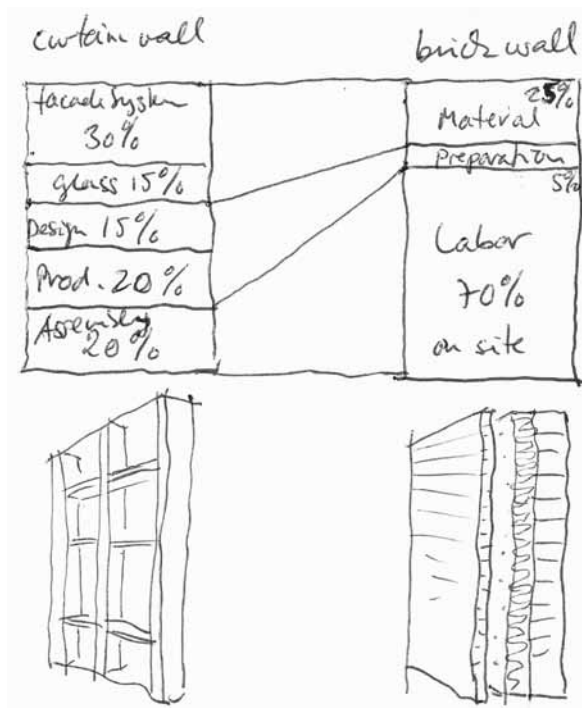 curtain wall
facade System
30%
glass 15%
Design 15%
Prod. 20%
Assembly
20%
brick wall
25%
Material
preparation
5%
Labor
70%
on site